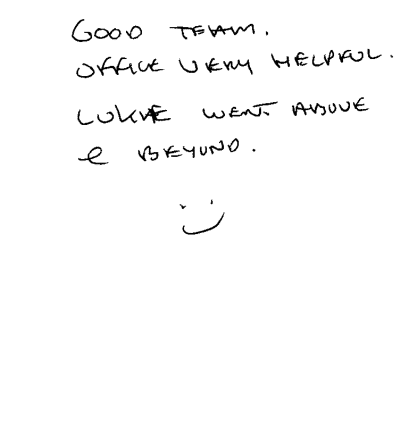 GOOD TEAM.
OFFICE VERY HELPFUL.
LUKE WENT ABOVE
& BEYOND.